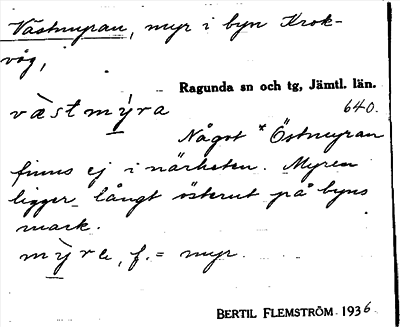 Västmyran, myr i byn Krok-
våg,
Ragunda sn och tg, Jämtl. län.
västmy̱ra 640.
Något *Östmyran
finns ej i närheten. Myren
ligger långt österut på byns
mark.
my̱re, f. = myr.
BERTIL FLEMSTRÖM 1936